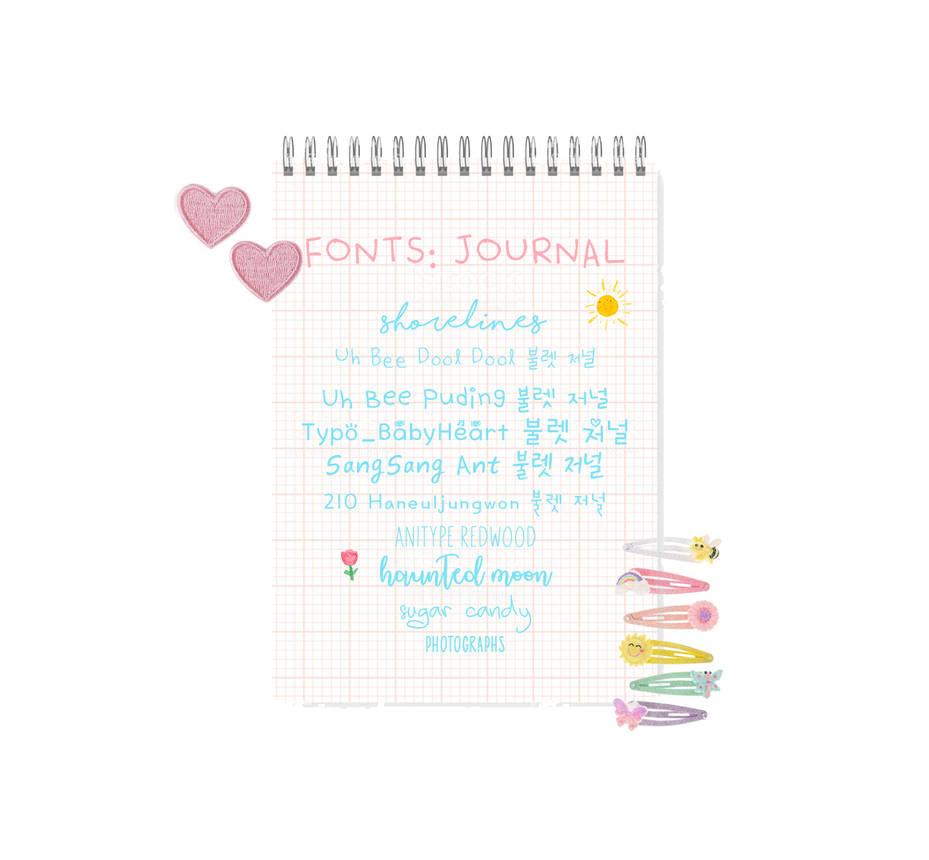 FONTS: JOURNAL
shorelines
Uh Bee Dool Dool 불렛 저널
Uh Bee Puding 불렛 저널
Typo_BabyHeart 불렛 저널
SangSang Ant 불렛 저널
210 Haneuljungwon 불렛 저널
ANITYPE REDWOOD
haunted moon
sugar candy
PHOTOGRAPHS